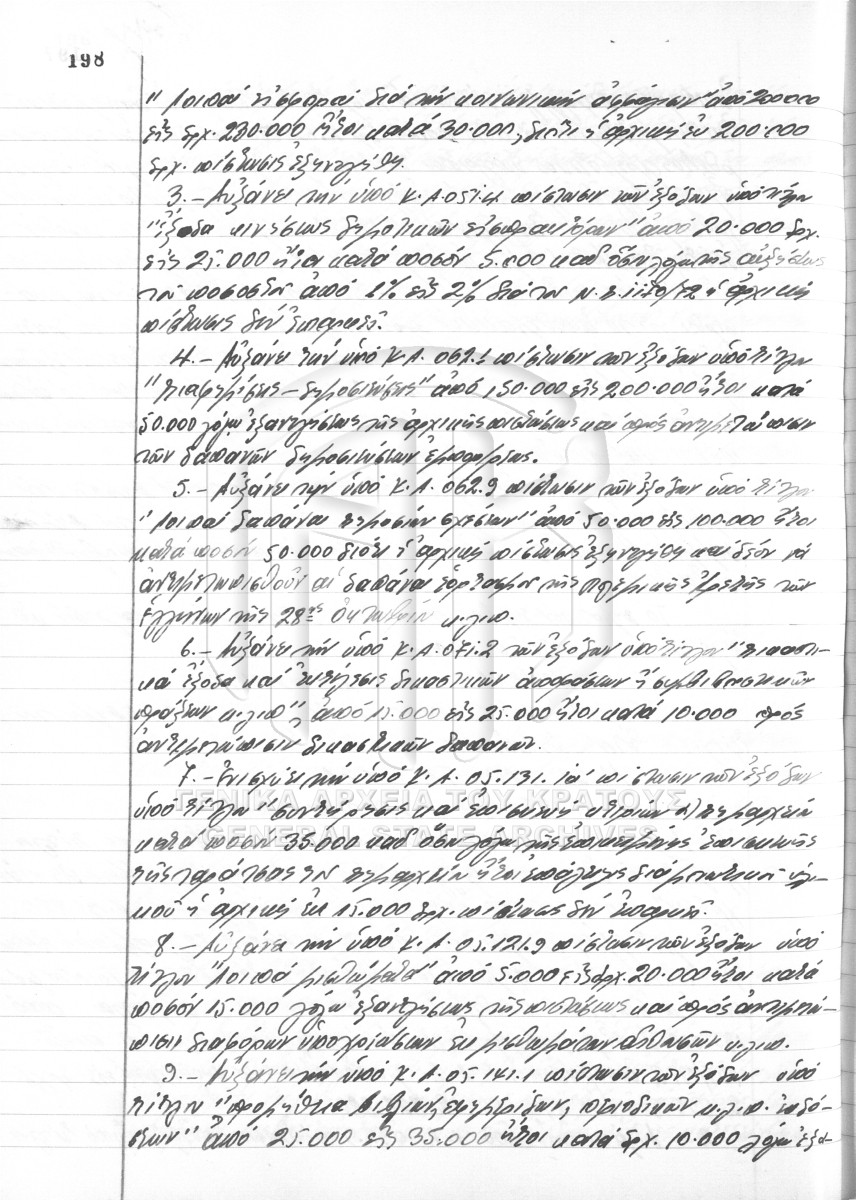 198
"Λοιπαί εἰσφοραί διά τήν κοινωνικήν ἀσφάλισιν" ἀπό 200000
εἰς δρχ. 230.000 ἤτοι κατά 30.000, διότι ἡ ἀρχική ἐκ 200.000
δρχ. πίστωσις ἐξηντλήθη.
3.- Αὐξάνει τήν ὑπό Κ.Α. 051.4 πίστωσιν τῶν ἐξόδων ὑπό τίτλον
"ἔξοδα κινήσεως δημοτικῶν εἰσπρακτόρων" ἀπό 20.000 δρχ.
εἰς 25.000 ἤτοι κατά ποσόν 5.000 καθ' ὅσον λόγῳ τῆς αὐξήσεως
τοῦ ποσοστοῦ ἀπό 1% εἰς 2% διά τοῦ Ν.Δ. 1170/72 ἡ ἀρχική
πίστωσις δέν ἐπαρκεῖ.
4.- Αὐξάνει τήν ὑπό Κ.Α. 062.1 πίστωσιν τῶν ἐξόδων ὑπό τίτλον
"Διαφημίσεις - δημοσιεύσεις" ἀπό 150.000 εἰς 200.000 ἤτοι κατά
50.000 λόγῳ ἐξαντλήσεως τῆς ἀρχικῆς πιστώσεως καί πρός ἀντιμετώπισιν
τῶν δαπανῶν δημοσιεύσεων
5.- Αὐξάνει τήν ὑπό Κ.Α. 062.9 πίστωσιν τῶν ἐξόδων ὑπό τίτλον
"Λοιπαί δαπάναι δημοσίων σχέσεων" ἀπό 50.000 εἰς 100.000 ἤτοι
κατά ποσόν 50.000 διότι ἡ ἀρχική πίστωσις ἐξηντλήθη καί δέον νά
ἀντιμετωπισθοῦν αἱ δαπάναι ἑορτασμοῦ τῆς πολεμικῆς ἀρετῆς τῶν
Ἑλλήνων τῆς 28ης Ὀκτωβρίου κ.λ.π.
6.- Αὐξάνει τήν ὑπό Κ.Α. 071.2 τῶν ἐξόδων ὑπό τίτλον "Δικαστι-
κά ἔξοδα καί ἐκτέλεσις δικαστικῶν ἀποφάσεων ἤ συμβιβαστικῶν
πράξεων κ.λ.π." ἀπό 15.000 εἰς 25.000 ἤτοι κατά 10.000 πρός
ἀντιμετώπισιν δικαστικῶν δαπανῶν.
7.- Ἐνισχύει τήν ὑπό Κ.Α. 05.131.1α' πίστωσιν τῶν ἐξόδων
ὑπό τίτλον "συντήρησις καί ἐπισκευή κτιρίων α) Δημαρχείου
κατά ποσόν 35.000 καθ' ὅσον λόγῳ τῆς ἐπικειμένης ἐπισκευῆς
τῆς ταράτσας τοῦ Δημαρχείου ἤτοι ἐπάλειψις διά μονωτικοῦ ὑλι-
κοῦ ἡ ἀρχική ἐκ 15.000 δρχ. πίστωσις δέν ἐπαρκεῖ.
8.- Αὐξάνει τήν ὑπό Κ.Α. 05.121.9 πίστωσιν τῶν ἐξόδων ὑπό
τίτλον "Λοιπά μισθώματα" ἀπό 5.000 εἰς δρχ. 20.000 ἤτοι κατά
ποσόν 15.000 λόγῳ ἐξαντλήσεως τῆς πιστώσεως καί πρός ἀντιμετώ-
πισιν διαφόρων ὑποχρεώσεων ἐκ μισθωμάτων αἰθουσῶν κ.λ.π.
9.- Αὐξάνει τήν ὑπό Κ.Α. 05.141.1 πίστωσιν τῶν ἐξόδων ὑπό
τίτλον "προμήθεια βιβλίων, ἐφημερίδων, περιοδικῶν κ.λ.π. ἐκδό-
σεων" ἀπό 25.000 εἰς 35.000 ἤτοι κατά δρχ. 10.000 λόγῳ ἐξα-
ΓΕΝΙΚΑ ΑΡΧΕΙΑ ΤΟΥ ΚΡΑΤΟΥΣ
GENERAL STATE ARCHIVES